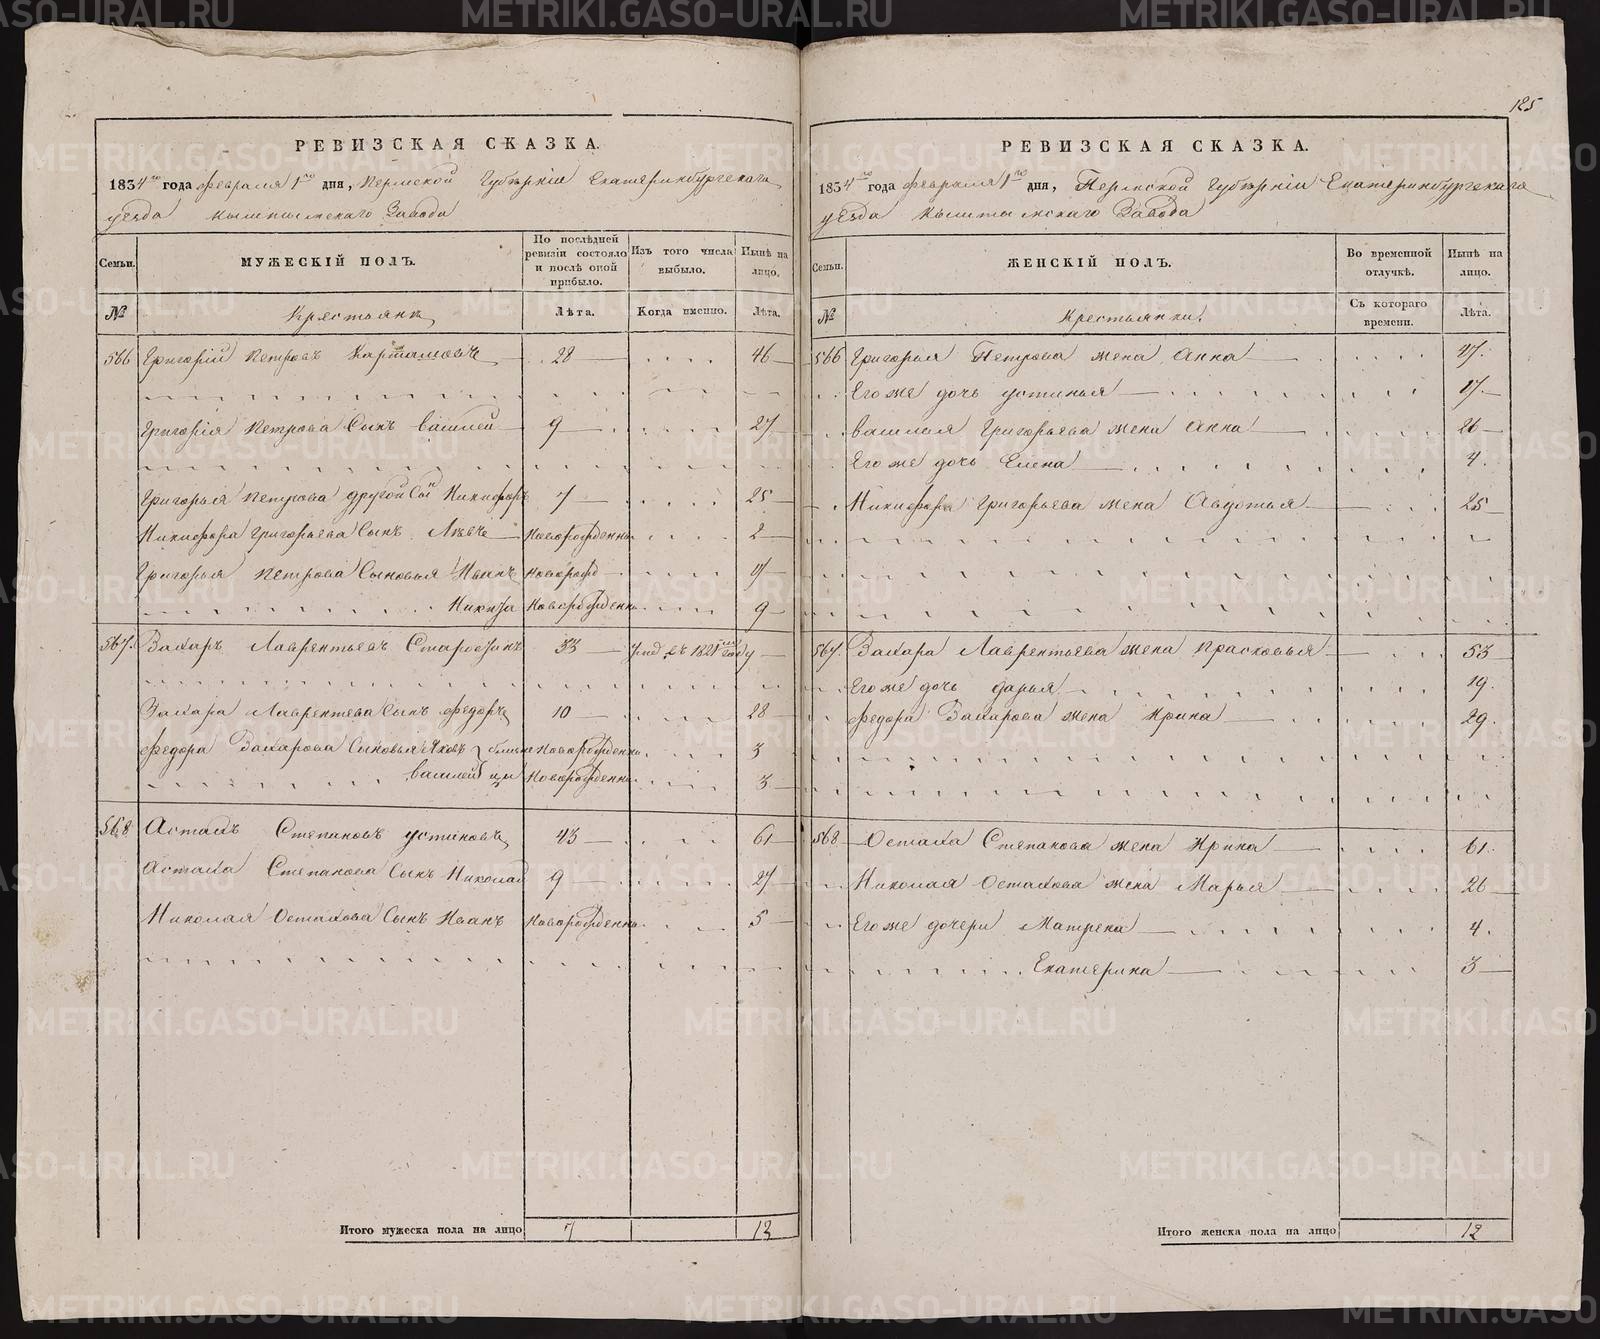 125
РЕВИЗСКАЯ СКАЗКА.
1834го года февраля 1го дня, Пермской Губѣрніи Екатеринбургскаго
уезда Кыштымскаго Завода
Семьи.
МУЖЕСКІЙ ПОЛЪ.
По послѣдней ревизіи состояло и послѣ оной прибыло.
Изъ того числа выбыло.
Нынѣ на лицо.
№
Крестьянъ
Лѣта.
Когда именно.
Лѣта.
566 Григорій Петровъ 28 46
Григорія Петрова Сынъ Василей 9 27
Григорья Петрова другой Сын Никифоръ 7 25
Никифора Григорьева Сынъ Новорожденны 2
Григорья Петрова Сыновья Иванъ Новорожд 17
Никита Новорожденны 9
567. Захаръ Лаврентьевъ 33 в 1821м году
Захара Лаврентева Сынъ Федоръ 10 28
Федора Захарова Сыновья Яковъ близне Новорожденны 3
Василей цы Новорожденны 3
568 Астахъ Степановъ Устиновъ 43 61
Астаха Степанова Сынъ Николай 9 27
Николая Остахова Сынъ Иванъ Новорожденны 5
Итого мужеска пола на лицо 7 13
РЕВИЗСКАЯ СКАЗКА.
1834го года февраля 1го дня, Пермской Губѣрніи Екатеринбургскаго
уезда Кыштымскаго Завода
Семьи.
ЖЕНСКІЙ ПОЛЪ.
Во временной отлучкѣ.
Нынѣ на лицо.
№
Крестьянки.
Съ котораго времени.
Лѣта.
566 Григорья Петрова жена Анна 47.
Его же дочь Устинья 17.
Василья Григорьева жена Анна 26
Его же дочь Елена 4.
Никифора Григорьева жена Авдотья 25
567. Захара Лаврентьева жена Прасковья 53
Его же дочь Дарья 19.
Федора Захарова жена Ирина 29.
568 Остаха Степанова жена Ирина 61.
Николая Остахова жена Марья 26
Его же дочери Матрена 4.
Екатерина 3
Итого женска пола на лицо 12
METRIKI.GASO-URAL.RU